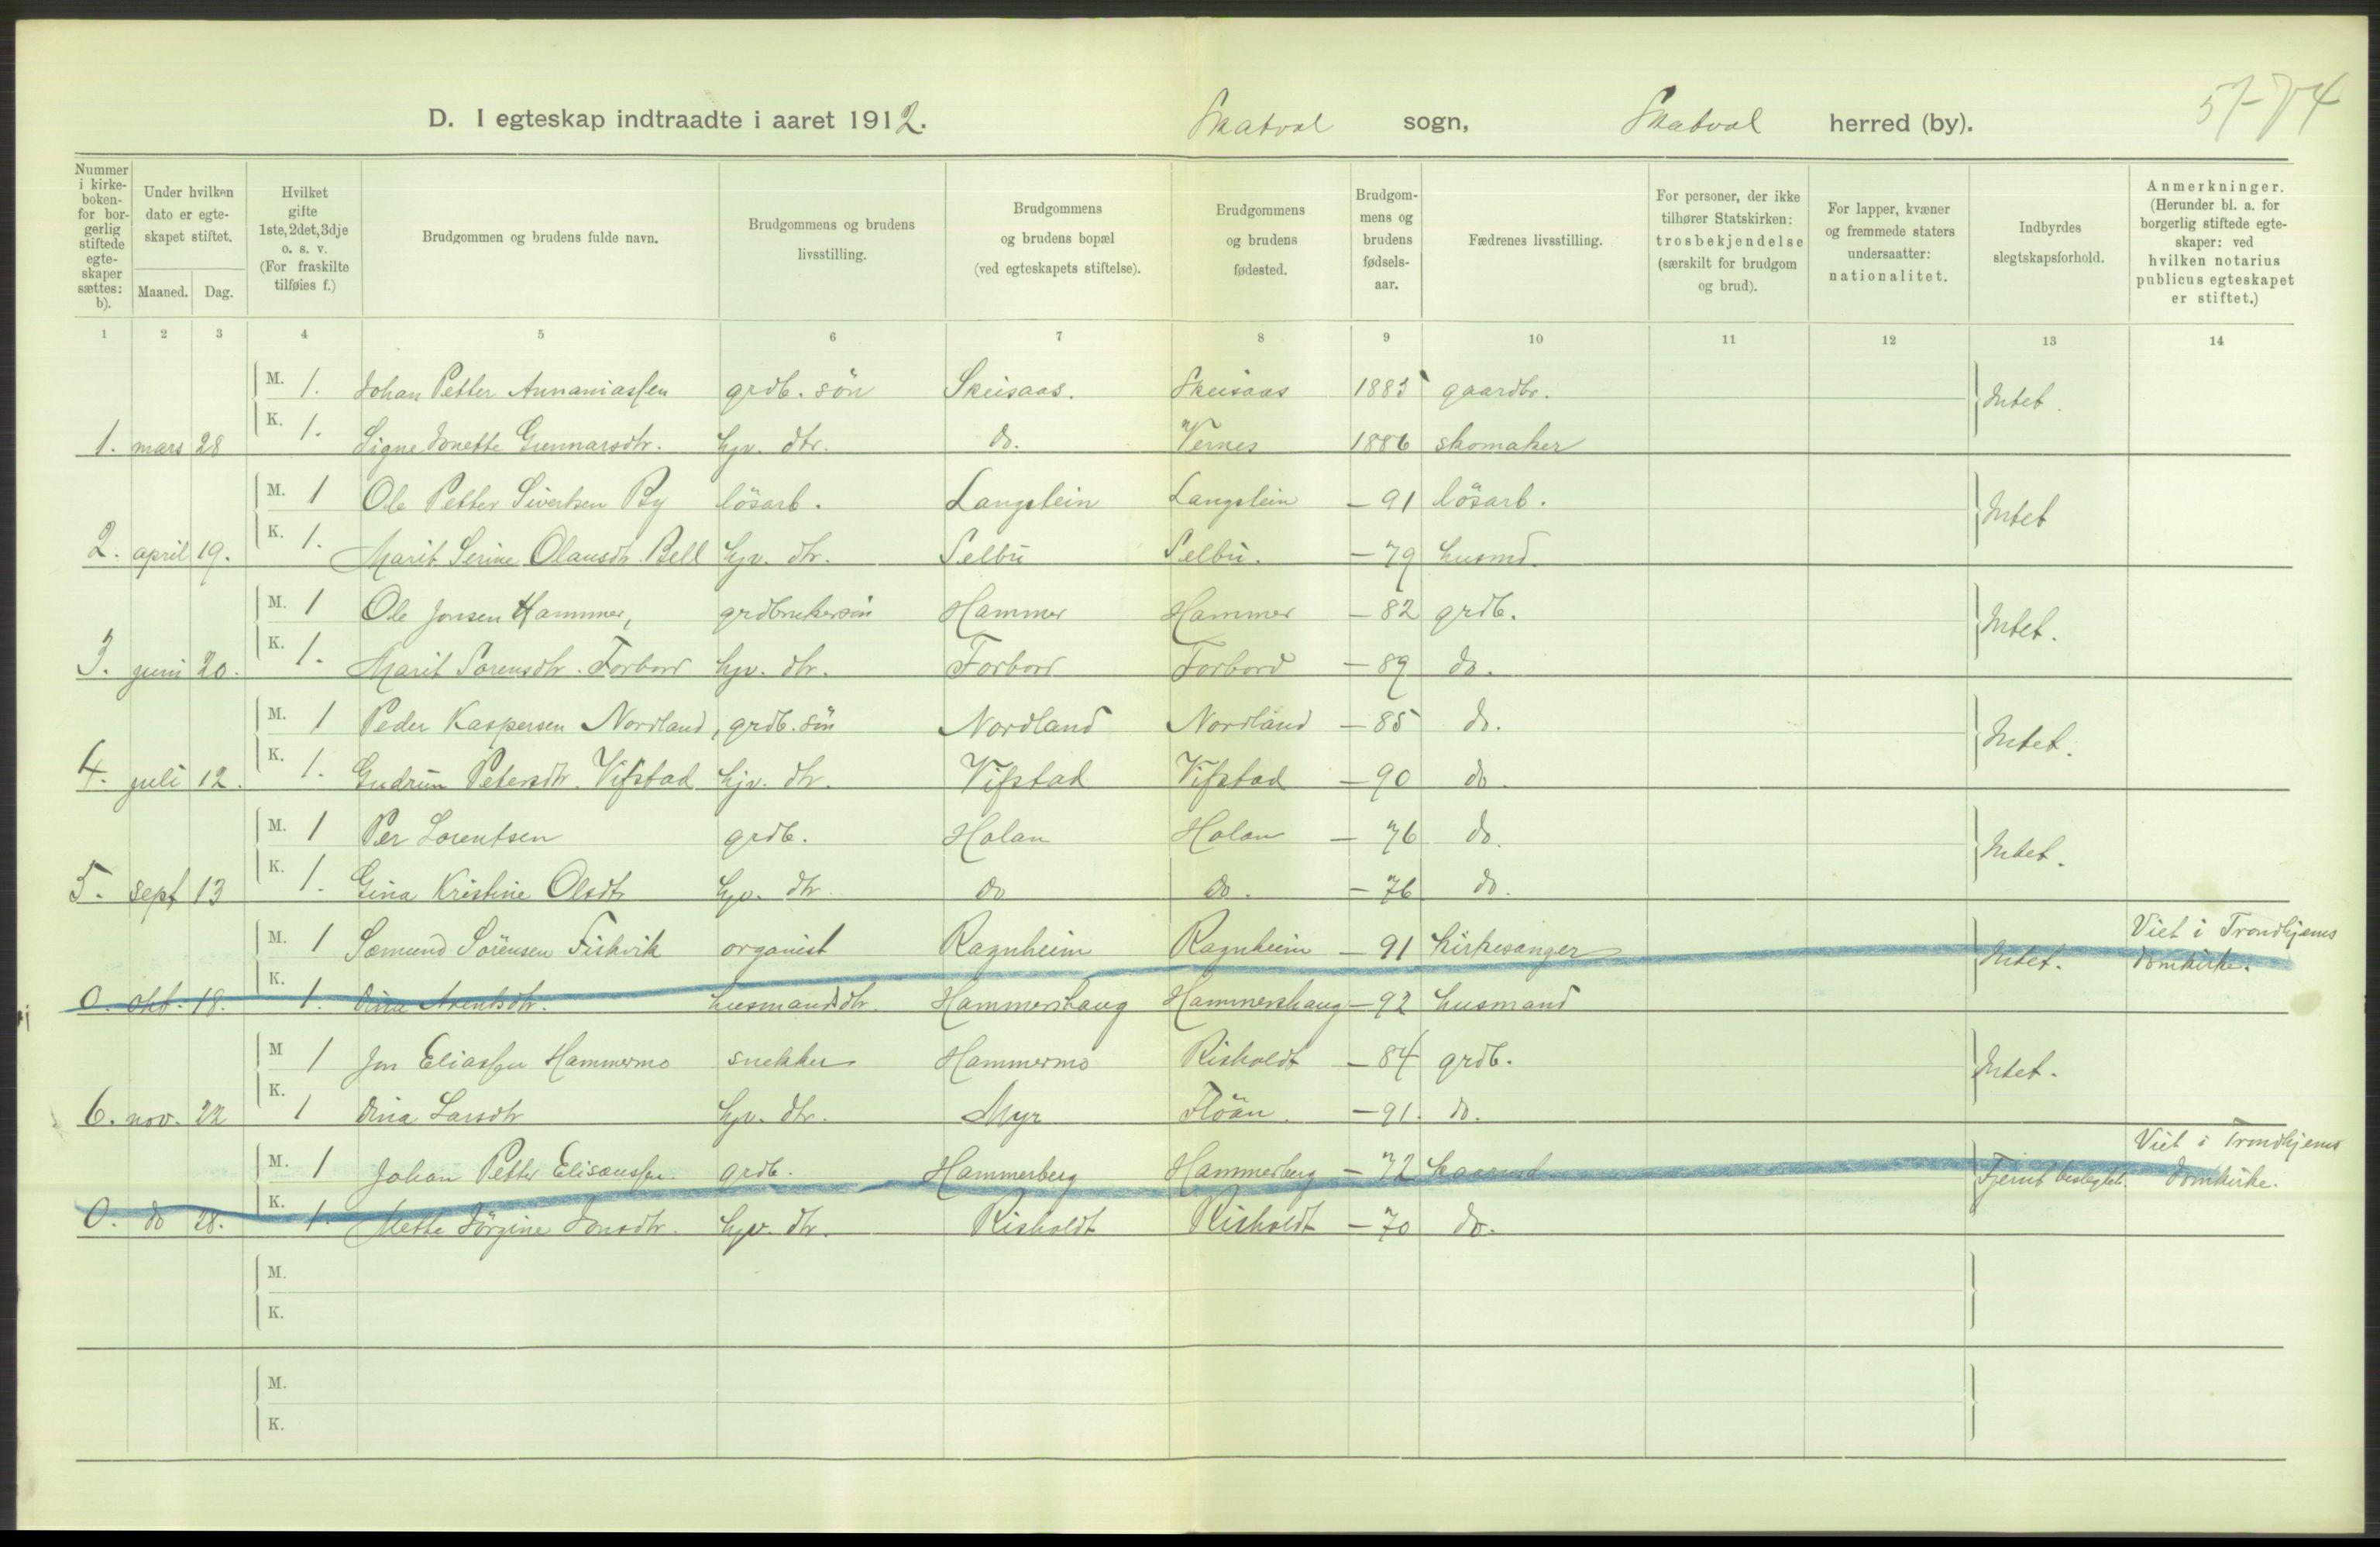 57-74
D. I egteskap indtraadte i aaret 1912. Skatval sogn, Skatval herred (by).
Nummer i kirkeboken- for borgerlig stiftede egteskaper sættes: b).
Under hvilken dato er egteskapet stiftet.
Maaned. Dag.
Hvilket gifte 1ste, 2det, 3dje o. s. v. (For fraskilte tilføies f.)
Brudgommen og brudens fulde navn.
Brudgommens og brudens livsstilling.
Brudgommens og brudens bopæl (ved egteskapets stiftelse).
Brudgommens og brudens fødested.
Brudgommens og brudens fødselsaar.
Fædrenes livsstilling.
For personer, der ikke tilhører Statskirken: trosbekjendelse (særskilt for brudgom og brud).
For lapper, kvæner og fremmede staters undersaatter: nationalitet.
Indbyrdes slegtskapsforhold.
Anmerkninger. (Herunder bl. a. for borgerlig stiftede egteskaper: ved hvilken notarius publicus egteskapet er stiftet.)
1 2 3 4 5 6 7 8 9 10 11 12 13 14
M. 1. Johan Petter Annaniassen grdb. sön Skeisaas. Skeisaas 1885 gaardbr. Intet.
1. mars 28 K. 1. Signe Jonette Gunnarsdtr. hjv. dtr. do. Vernes 1886 skomaker
M. 1 Ole Petter Sivertsen By lösarb. Langstein Langstein - 91 lösarb. Intet
2. april 19. K. 1. Marit Serine Olausdtr. Bell hjv. dtr. Selbu Selbu. - 79 husmd.
M. 1 Ole Jonsen Hammer, grdbrukersön Hammer Hammer - 82 grdb. Intet.
3. juni 20. K. 1. Marit Sorensdtr. Forbord hjv. dtr. Forbord Forbord - 89 do.
M. 1 Peder Kaspersen Nordland, grdb. sön Nordland Nordland - 85 do. Intet.
4. juli 12. K. 1. Gudrun Petersdtr. Vifstad hjv. dtr. Vifstad Vifstad - 90 do.
M. 1 Per Lorentsen grdb. Holan Holan - 76 do. Intet.
5. sept 13 K. 1. Gina Kristine Olsdtr hjv. dtr. do do. - 76 do.
M. 1 Sæmund Sörensen Fiskvik organist Ragnheim Ragnheim - 91 kirkesanger Intet. Viet i Trondhjems domkirke.
0. okt. 18. K. 1. Dina Arentsdtr. husmandsdtr. Hammershaug Hammershaug - 92 husmand
M 1 Jon Eliassen Hammermo snekker Hammermo Risholdt - 84 grdb. Intet.
6. nov. 22 K. 1 Dina Larsdtr hjv. dtr. Myr Flöan. - 91. do.
M. 1 Johan Petter Elisæussen grdb. Hammerberg Hammerberg - 72 Fjernt beslegtet. Viet i Trondhjems domkirke.
0. do 28. K. 1. Mette Jörgine Jonsdtr. hjv. dtr. Risholdt Risholdt - 70 do.
M.
K.
M.
K.